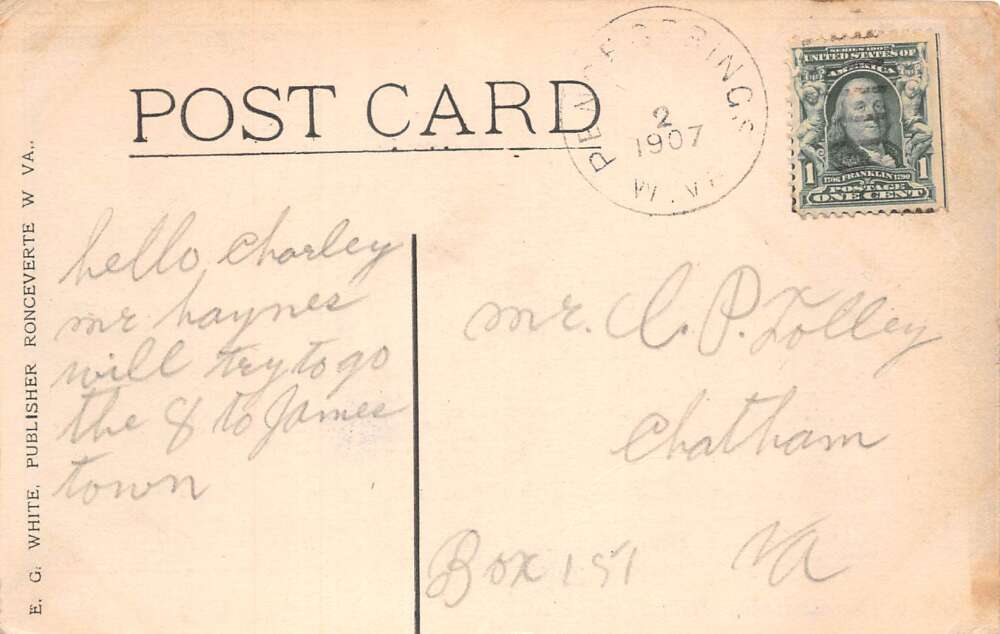 POST CARD
PENCE SPRINGS
2
1907
W. VA.
SERIES 1902
UNITED STATES OF
AMERICA
1 FRANKLIN 1
1706 1790
POSTAGE
ONE CENT
hello Charley
mr haynes
will try to go
the 8 to James
town
mr. C. P. Tolley
Chatham
Box 151 Va
E. G. WHITE, PUBLISHER RONCEVERTE W VA..